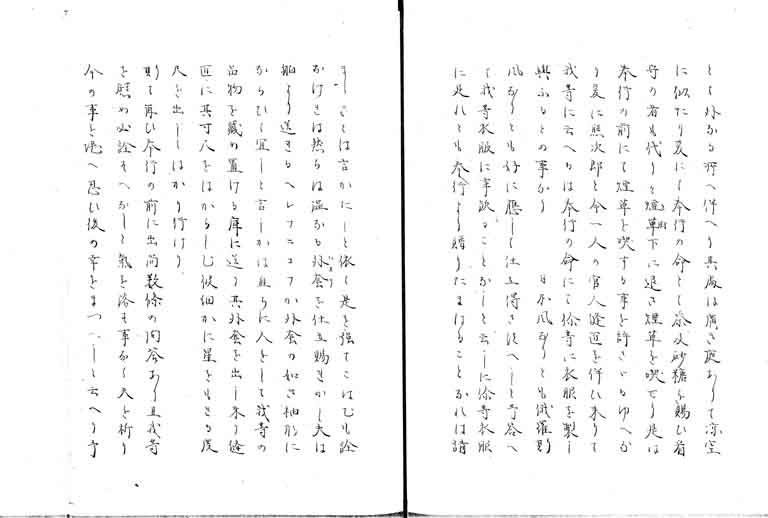 とも外なる所へ伴へり其処は広き庭ありて涼室
に似たり爰にて奉行の命として茶及砂糖を賜ひ看
守の者も代り〻煙草下に退き煙草を喫せり是は
奉行の前にて煙草を喫する事を許さゞるゆへか
り爰に熊次郎と今一人の官人縫匠を伴ひ来りて
我等に云へるは奉行の命にて徐等に衣服を製し
与ふるとの事なり 日本風なりとも俄羅斯
風なりとも好に応して仕立得さすへしと予答へ
て我等衣服に事欠ることなしと云しに徐等衣服
に足れとも奉行より贈りたまはることなれは請
すしさとは言かたしと依て是を強てこはむも詮
なけきは然らは温かる外套を仕立賜きかし夫は
船より送きるヘレフニコフか外套の如き袖形に
からひて宜しと言しかは直ちに人をして我等の
品物を蔵め置ける庫に送り其外套を出し来り縫
匠に其寸尺をはからしむ彼細かに墨をもきる度
尺を出ししはかり行けり
斯て再ひ奉行の前に出尚数條の問答あり且我等
を慰め必詮そへなしと気を落す事なく天を祈り
今の事を忍へ忍ひ後の幸をまつへしと云へり予